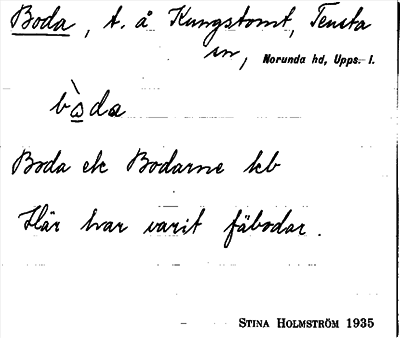 Boda, t. å Kungstomt, Tensta
sn, Norunda hd, Upps. l.
bòda
Boda elc Bodarne hb
Här har varit fäbodar.
STINA HOLMSTRÖM 1935